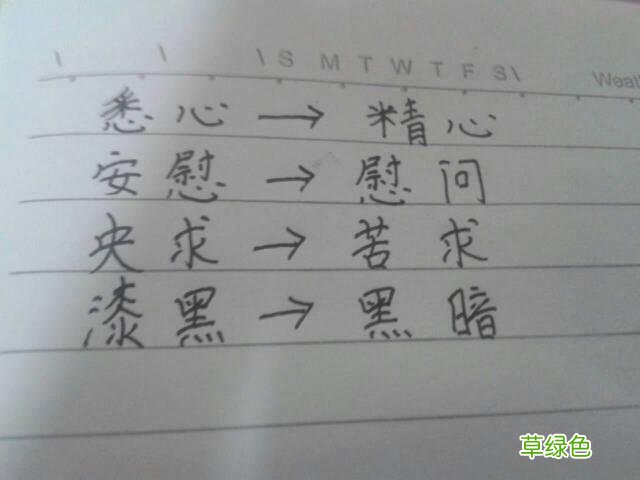 \ \ \ S M T W T F S \ Weat
悉心→精心
安慰→慰问
央求→苦求
漆黑→黑暗
草绿色